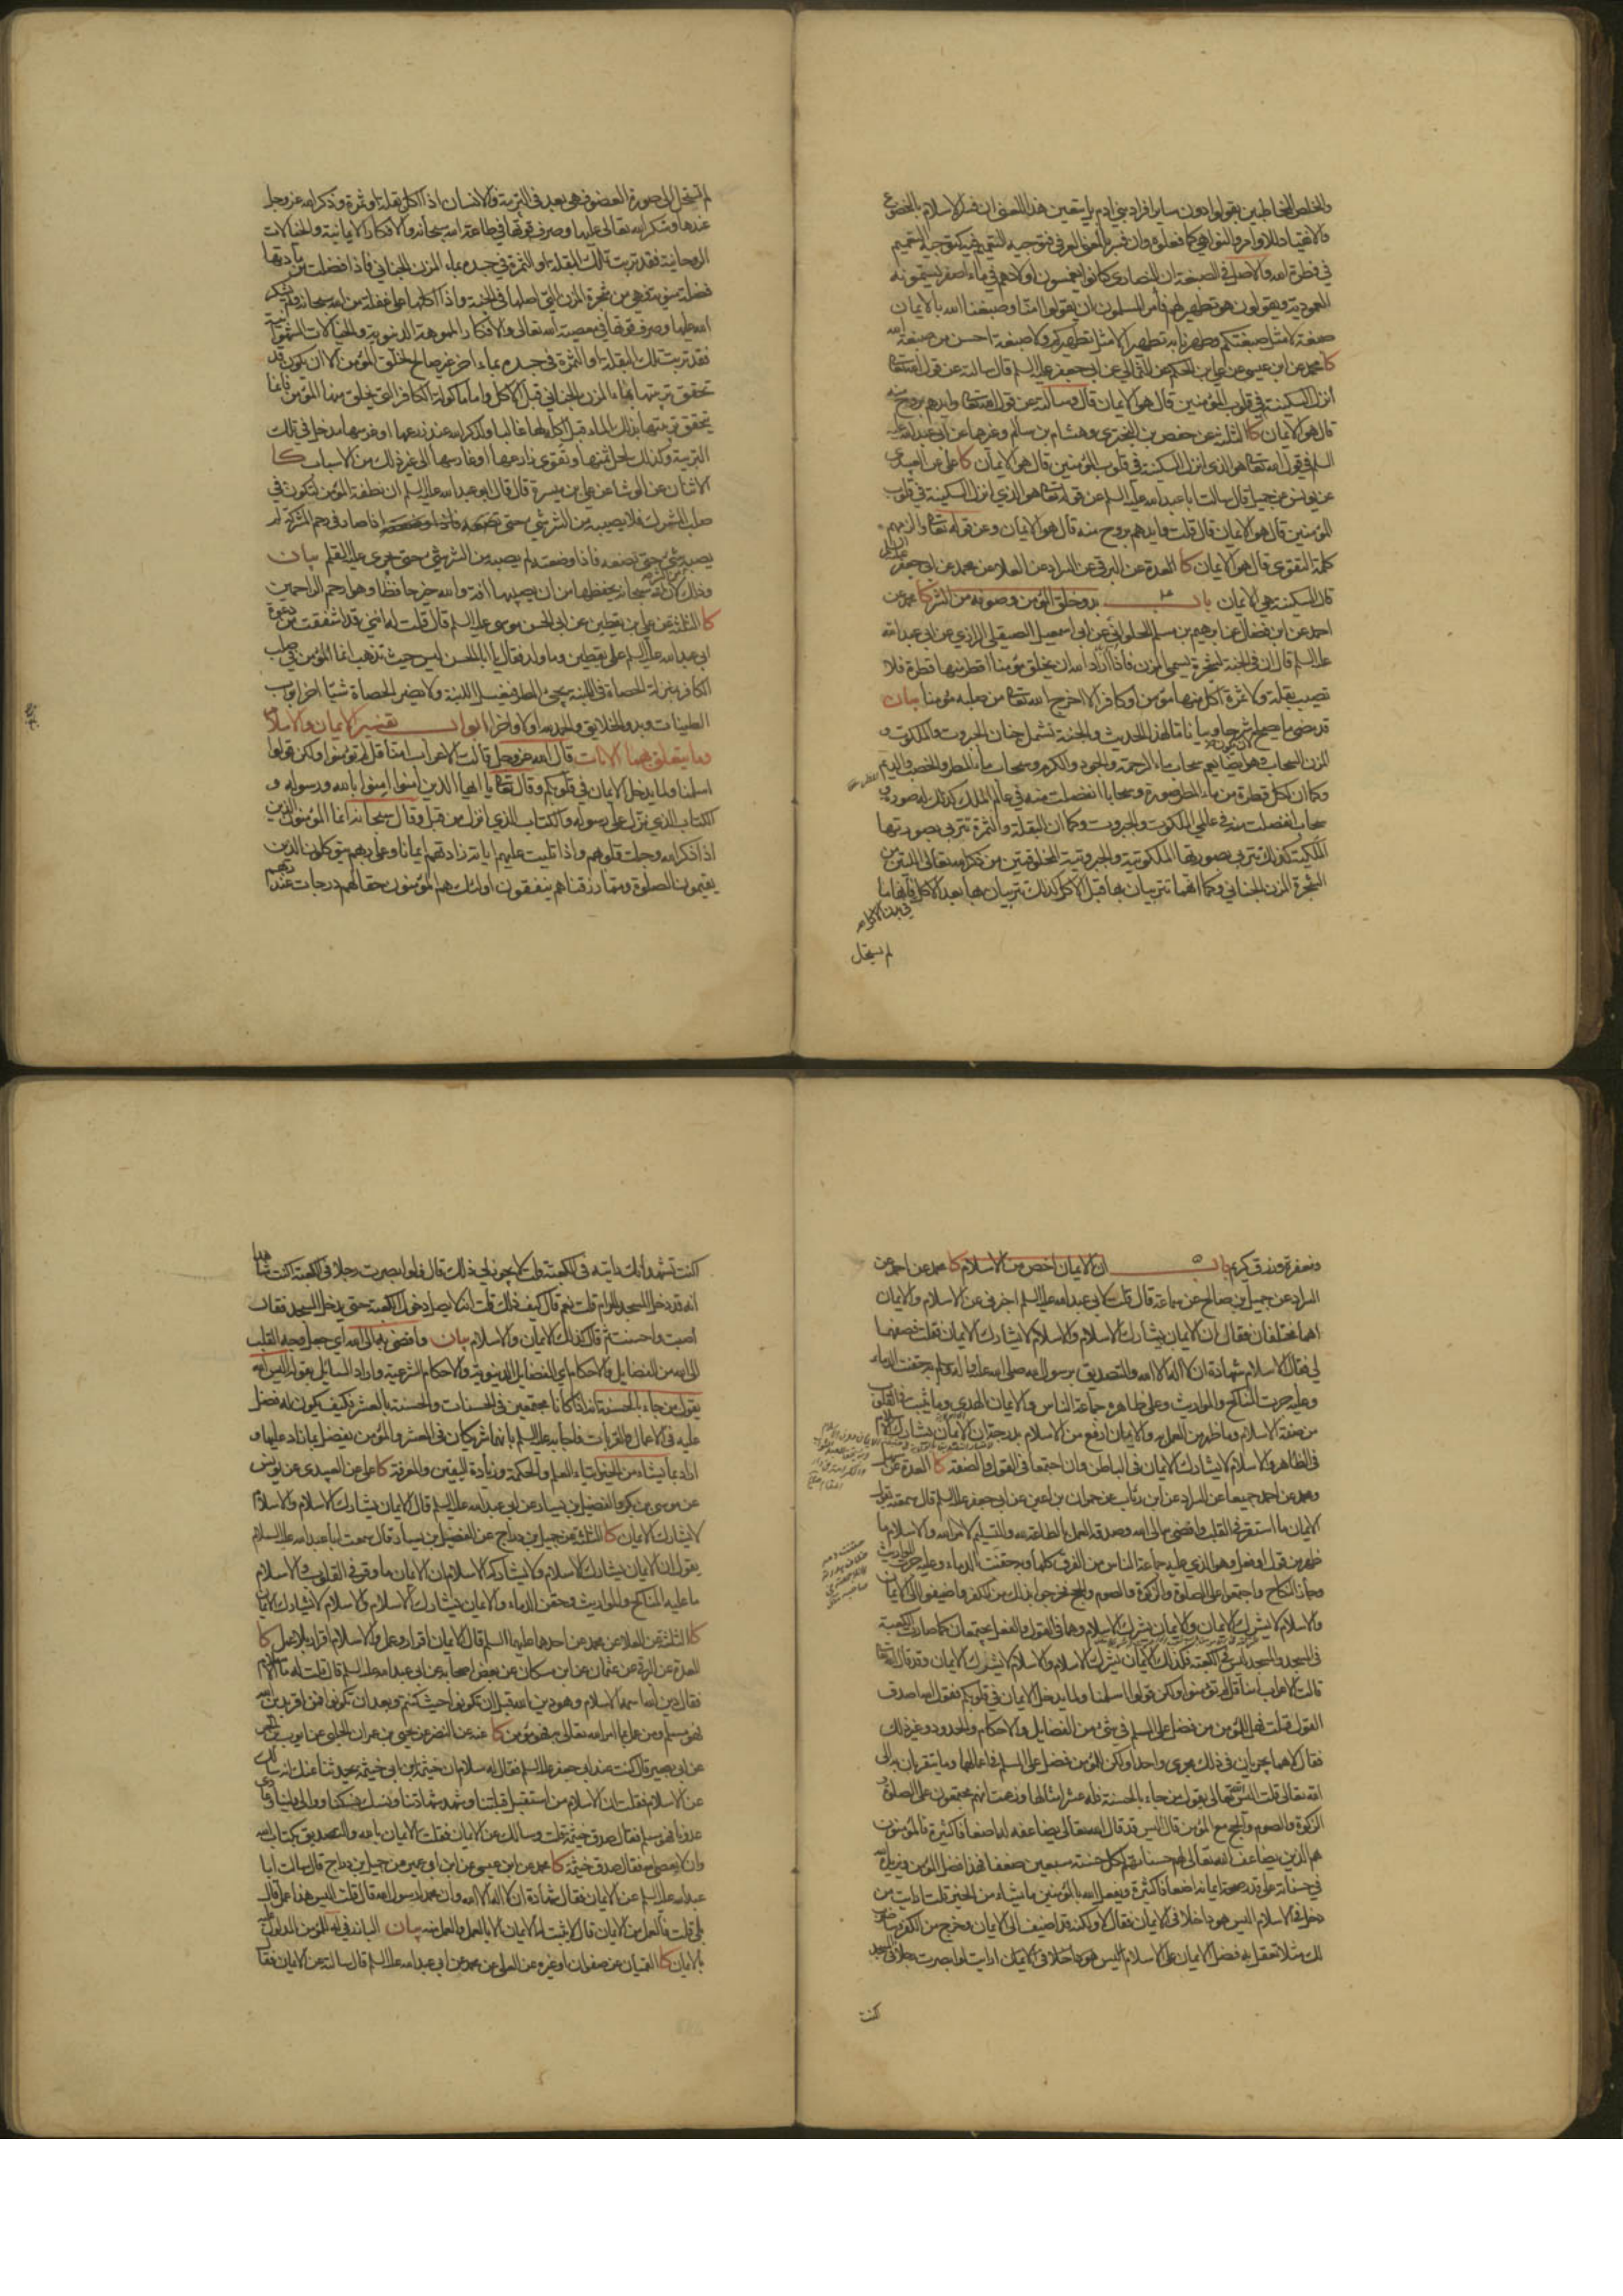 والخلص المخاطبين بقولوا دون ساير افراد بني ادم بل يتعين هذا المعنى ان فسر الاسلام بالخضوع
والانقياد للاوامر والنواهي كما فعلوه وان فسر بالمعنى العرفي فتوجيه التتميم فيه كتوجيه التتميم
في فطرة الله والاصل في الصبغة ان النصارى كانوا يغمسون اولادهم في ماء اصفر يسمونه
المعمودية ويقولون هو تطهير لهم فأمر المسلمون ان يقولوا امنا وصبغنا الله بالايمان
صبغة لا مثل صبغتكم وطهرنا به تطهيرا لا مثل تطهيركم ولا صبغة احسن من صبغة الله
كا محمد عن ابن عيسى عن علي بن الحكم عن الثمالي عن ابي جعفر عليه السلم قال سالته عن قول الله تعالى
انزل السكينة في قلوب المؤمنين قال هو الايمان قال وسالته عن قول الله تعالى وايدهم بروح منه
قال هو الايمان كا الثلثة عن حفص بن البختري وهشام بن سالم وغيرهما عن ابي عبد الله عليه
السلم في قول الله تعالى هو الذي انزل السكينة في قلوب المؤمنين قال هو الايمان كا علي عن العبيدي
عن يونس عن جميل قال سالت ابا عبد الله عليه السلم عن قوله تعالى هو الذي انزل السكينة في قلوب
المؤمنين قال هو الايمان قال قلت وايدهم بروح منه قال هو الايمان وعن قوله تعالى والزمهم
كلمة التقوى قال هو الايمان كا العدة عن البرقي عن السراد عن العلا عن محمد عن ابي جعفر عليه السلم
قال السكينة هي الايمان باب بدو خلق المؤمن وصونه من الشر كا محمد عن
احمد عن ابن فضال عن ابرهيم بن مسلم الحلواني عن ابي اسمعيل الصيقل الرازي عن ابي عبد الله
عليه السلم قال ان في الجنة لشجرة تسمى المزن فاذا اراد الله ان يخلق مؤمنا اقطر منها قطرة فلا
تصيب بقلة ولا ثمرة اكل منها مؤمن او كافر الا اخرج الله تعالى من صلبه مؤمنا بيان
قد مضى ما يصلح شرحا وبيانا لهذا الحديث والجنة تشمل جنان الجبروت والملكوت و
المزن السحاب وهو ايضا يعم سحاب ماء الرحمة والجود والكرم وسحاب ماء المطر والخصب والديم
وكما ان لكل قطرة من ماء المطر صورة وسحابا انفصلت منه في عالم الملك كذلك له صورة و
سحاب انفصلت منه في عالمي الملكوت والجبروت وكما ان البقلة والثمرة تتربى بصورتها
الملكية كذلك تتربى بصورتها الملكوتية والجبروتية المخلوقتين من ذكر الله تعالى اللتين من
شجرة المزن الجناني وكما انهما تتربيان بها قبل الاكل كذلك تتربيان بها بعد الاكل فانها ما
في بدن الاكل
لم تستحل
لم تستحل الى صورة العضو فهي بعد في التربية والانسان اذا اكل بقلة او ثمرة وذكر الله عز وجل
عندها وشكر الله تعالى عليها وصرف قوتها في طاعة الله سبحانه والافكار الايمانية والخيالات
الروحانية فقد تربت تلك البقلة او الثمرة في جسده بماء المزن الجناني فاذا فضلت من مادتها
فضلة منوية فهي من شجرة المزن التي اصلها في الجنة واذا اكلها على غفلة من الله سبحانه ولم يشكر
الله عليها وصرف قوتها في معصية الله تعالى والافكار المموهة الدنيوية والخيالات الشهوانية
فقد تربت تلك البقلة او الثمرة في جسده بماء اخر غير صالح لخلق المؤمن الا ان يكون قد
تحقق تربيتها بماء المزن الجناني قبل الاكل واما ماكولة الكافر التي يخلق منها المؤمن فانما
يتحقق تربيتها بذلك الماء قبل اكله لها غالبا ولذكر الله عند زرعها او غرسها مدخل في تلك
التربية وكذلك لحل ثمنها وتقوى زارعها او غارسها الى غير ذلك من الاسباب كا
الاثنان عن الوشا عن علي بن ميسرة قال قال ابو عبد الله عليه السلم ان نطفة المؤمن لتكون في
صلب المشرك فلا يصيبه من الشر شيء حتى اذا صار في رحم المشركة لم
يصبه شيء حتى تضعه فاذا وضعته لم يصبه من الشر شيء حتى يجري عليه القلم بيان
وذلك لان الله سبحانه يحفظها من ان يصيبها افة والله خير حافظا وهو ارحم الراحمين
كا الثلثة عن علي بن يقطين عن ابي الحسن موسى عليه السلم قال قلت له انني قد اشفقت من دعوة
ابي عبد الله عليه السلم على يقطين وما ولد فقال يا ابا الحسن ليس حيث تذهب انما المؤمن في صلب
الكافر بمنزلة الحصاة في اللبنة يجيء المطر فيغسل اللبنة ولا يضر الحصاة شيئا اخر ابواب
الطينات وبدو الخلايق والحمد لله اولا واخرا ابواب تفسير الايمان والاسلام
وما يتعلق بهما الايات قال الله عز وجل قالت الاعراب امنا قل لم تؤمنوا ولكن قولوا
اسلمنا ولما يدخل الايمان في قلوبكم وقال تعالى يا ايها الذين امنوا امنوا بالله ورسوله و
الكتاب الذي نزل على رسوله والكتاب الذي انزل من قبل وقال سبحانه انما المؤمنون الذين
اذا ذكر الله وجلت قلوبهم واذا تليت عليهم اياته زادتهم ايمانا وعلى ربهم يتوكلون الذين
يقيمون الصلوة ومما رزقناهم ينفقون اولئك هم المؤمنون حقا لهم درجات عند ربهم
ومغفرة ورزق كريم باب ان الايمان اخص من الاسلام كا محمد عن احمد عن
السراد عن جميل بن صالح عن سماعة قال قلت لابي عبد الله عليه السلم اخبرني عن الاسلام والايمان
اهما مختلفان فقال ان الايمان يشارك الاسلام والاسلام لا يشارك الايمان فقلت فصفهما
لي فقال الاسلام شهادة ان لا اله الا الله والتصديق برسول الله صلى الله عليه واله وسلم به حقنت الدماء
وعليه جرت المناكح والمواريث وعلى ظاهره جماعة الناس والايمان الهدى وما يثبت في القلوب
من صفة الاسلام وما ظهر من العمل به والايمان ارفع من الاسلام بدرجة ان الايمان يشارك الاسلام
في الظاهر والاسلام لا يشارك الايمان في الباطن وان اجتمعا في القول والصفة كا العدة عن سهل
ومحمد عن احمد جميعا عن السراد عن ابن رئاب عن حمران بن اعين عن ابي جعفر عليه السلم قال سمعته يقول
الايمان ما استقر في القلب وافضى به الى الله وصدقه العمل بالطاعة لله والتسليم لامر الله والاسلام ما
ظهر من قول او فعل وهو الذي عليه جماعة الناس من الفرق كلها وبه حقنت الدماء وعليه جرت المواريث
وجاز النكاح واجتمعوا على الصلوة والزكوة والصوم والحج فخرجوا بذلك من الكفر واضيفوا الى الايمان
والاسلام لا يشرك الايمان والايمان يشرك الاسلام وهما في القول والفعل يجتمعان كما صارت الكعبة
في المسجد والمسجد ليس في الكعبة فكذلك الايمان يشرك الاسلام والاسلام لا يشرك الايمان وقد قال الله تعالى
قالت الاعراب امنا قل لم تؤمنوا ولكن قولوا اسلمنا ولما يدخل الايمان في قلوبكم فقول الله اصدق
القول قلت فهل للمؤمن من فضل على المسلم في شيء من الفضايل والاحكام والحدود وغير ذلك
فقال لا هما يجريان في ذلك مجرى واحد ولكن للمؤمن فضل على المسلم في اعمالهما وما يتقربان به الى
الله تعالى قلت اليس الله تعالى يقول من جاء بالحسنة فله عشر امثالها وزعمت انهم مجتمعون على الصلوة
والزكوة والصوم والحج مع المؤمن قال اليس قد قال الله تعالى يضاعفه له اضعافا كثيرة فالمؤمنون
هم الذين يضاعف الله تعالى لهم حسناتهم لكل حسنة سبعين ضعفا فهذا فضل المؤمن ويزيده الله
في حسناته على قدر صحة ايمانه اضعافا كثيرة ويفعل الله بالمؤمنين ما يشاء من الخير قلت ارايت من
دخل في الاسلام اليس هو داخلا في الايمان فقال لا ولكنه قد اضيف الى الايمان وخرج من الكفر وساضرب
لك مثلا تعقل به فضل الايمان على الاسلام ارايت لو ابصرت رجلا في المسجد
كنت
كنت تشهد انك رايته في الكعبة قلت لا يجوز لي ذلك قال فلو ابصرت رجلا في الكعبة كنت شاهدا
انه قد دخل المسجد الحرام قلت نعم قال كيف ذلك قلت انه لا يصل دخول الكعبة حتى يدخل المسجد فقال
اصبت واحسنت ثم قال كذلك الايمان والاسلام بيان وافضى به الى الله اي جعل وجه القلب
الى الله من الفضايل والاحكام اي الفضايل الدنيوية والاحكام الشرعية واراد السائل بقوله اليس الله
يقول من جاء بالحسنة انهما اذا كانا مجتمعين في الحسنات والحسنة بالعشر فكيف يكون له فضل
عليه في الاعمال والقربات فاجابه عليه السلم بانهما شريكان في العشر والمؤمن يفضل بما زاد عليها و
اراد بما يشاء من الخير ايتاء العلم والحكمة وزيادة اليقين والمعرفة كا علي عن العبيدي عن يونس
عن موسى بن بكر والفضيل بن يسار عن ابي عبد الله عليه السلم قال الايمان يشارك الاسلام والاسلام
لا يشارك الايمان كا الثلثة عن جميل بن دراج عن الفضيل بن يسار قال سمعت ابا عبد الله عليه السلام
يقول ان الايمان يشارك الاسلام ولا يشاركه الاسلام ان الايمان ما وقر في القلوب والاسلام
ما عليه المناكح والمواريث وحقن الدماء والايمان يشارك الاسلام والاسلام لا يشارك الايمان
كا الثلثة عن العلا عن محمد عن احدهما عليهما السلم قال الايمان اقرار وعمل والاسلام اقرار بلا عمل كا
العدة عن البرقي عن عثمان عن ابن مسكان عن بعض اصحابه عن ابي عبد الله عليه السلم قال قلت له ما الاسلام
فقال دين الله اسمه الاسلام وهو دين الله قبل ان تكونوا حيث كنتم وبعد ان تكونوا فمن اقر بدين الله
فهو مسلم ومن عمل بما امر الله تعالى به فهو مؤمن كا عنه عن النضر عن يحيى بن عمران الحلبي عن ايوب بن الحر
عن ابي بصير قال كنت عند ابي جعفر عليه السلم فقال له سلام ان خيثمة بن ابي خيثمة يحدثنا عنك انه سالك
عن الاسلام فقلت ان الاسلام من استقبل قبلتنا وشهد شهادتنا ونسك نسكنا ووالى ولينا وعادى
عدونا فهو مسلم فقال صدق خيثمة قلت وسالك عن الايمان فقلت الايمان بالله والتصديق بكتاب الله
وان لا يعصى الله فقال صدق خيثمة كا محمد عن ابن عيسى عن ابن ابي عمير عن جميل بن دراج قال سالت ابا
عبد الله عليه السلم عن الايمان فقال شهادة ان لا اله الا الله وان محمدا رسول الله قال قلت اليس هذا عمل قال
بلى قلت فالعمل من الايمان قال لا يثبت له الايمان الا بالعمل والعمل منه بيان
بالايمان كا القميان عن صفوان او غيره عن العلا عن محمد عن ابي عبد الله عليه السلم قال سالته عن الايمان فقال